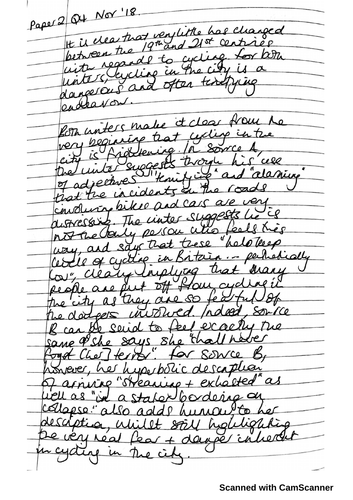 Paper 2 Q4 Nov '18.
It is clear that very little has changed
between the 19th and 21st centuries
with regards to cycling. For both
writers, cycling in the city is a
dangerous and often terrifying
endeavour.
Both writers make it clear from the
very beginning that cycling in the
city is frightening. In source A,
the writer suggests through his use
of adjectives "terrifying" and "alarming"
that the incidents on the roads
involving bikes and cars are very
distressing. The writer suggests he is
not the only person who feels this
way, and says that these "help keep
levels of cycling in Britain ... pathetically
low", clearly implying that many
people are put off from cycling in
the city as they are so fearful of
the dangers involved. Indeed, source
B can be said to feel exactly the
same as she says she "shall never
forget [her] terror". For source B,
however, her hyperbolic description
of arriving "streaming + exhausted" as
well as "in a state bordering on
collapse" also adds humour to her
description, whilst still highlighting
the very real fear + danger inherent
in cycling in the city.
Scanned with CamScanner